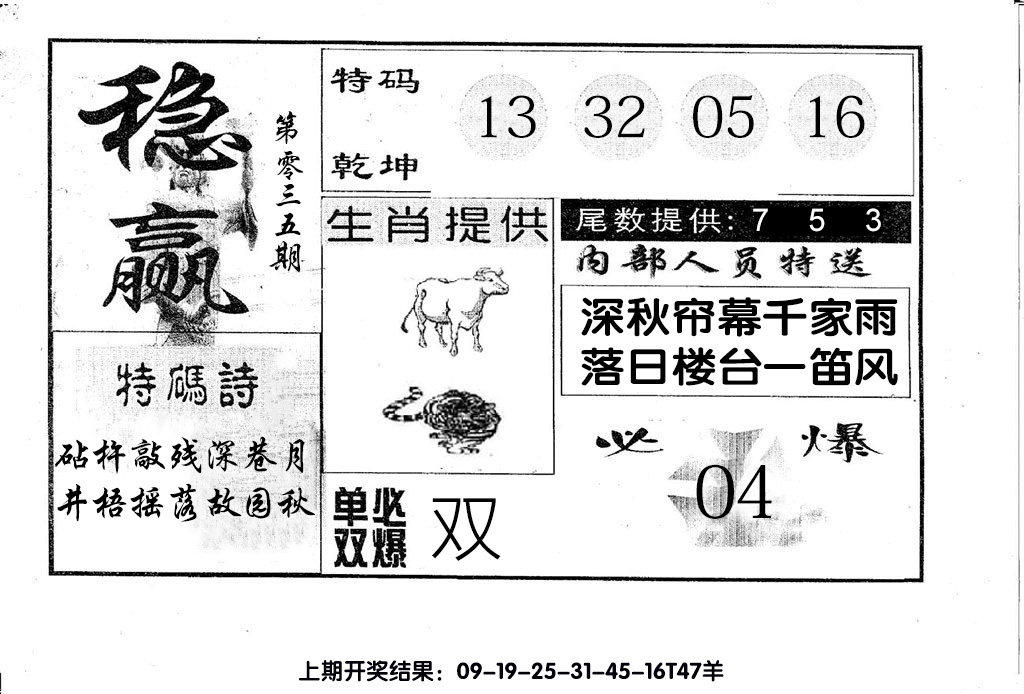 稳赢
第零三五期
特码
乾坤
13 32 05 16
生肖提供
尾数提供: 7 5 3
内部人员特送
深秋帘幕千家雨
落日楼台一笛风
特碼詩
砧杵敲残深巷月
井梧摇落故园秋
单双
必爆
双
必爆
04
上期开奖结果：09-19-25-31-45-16T47羊